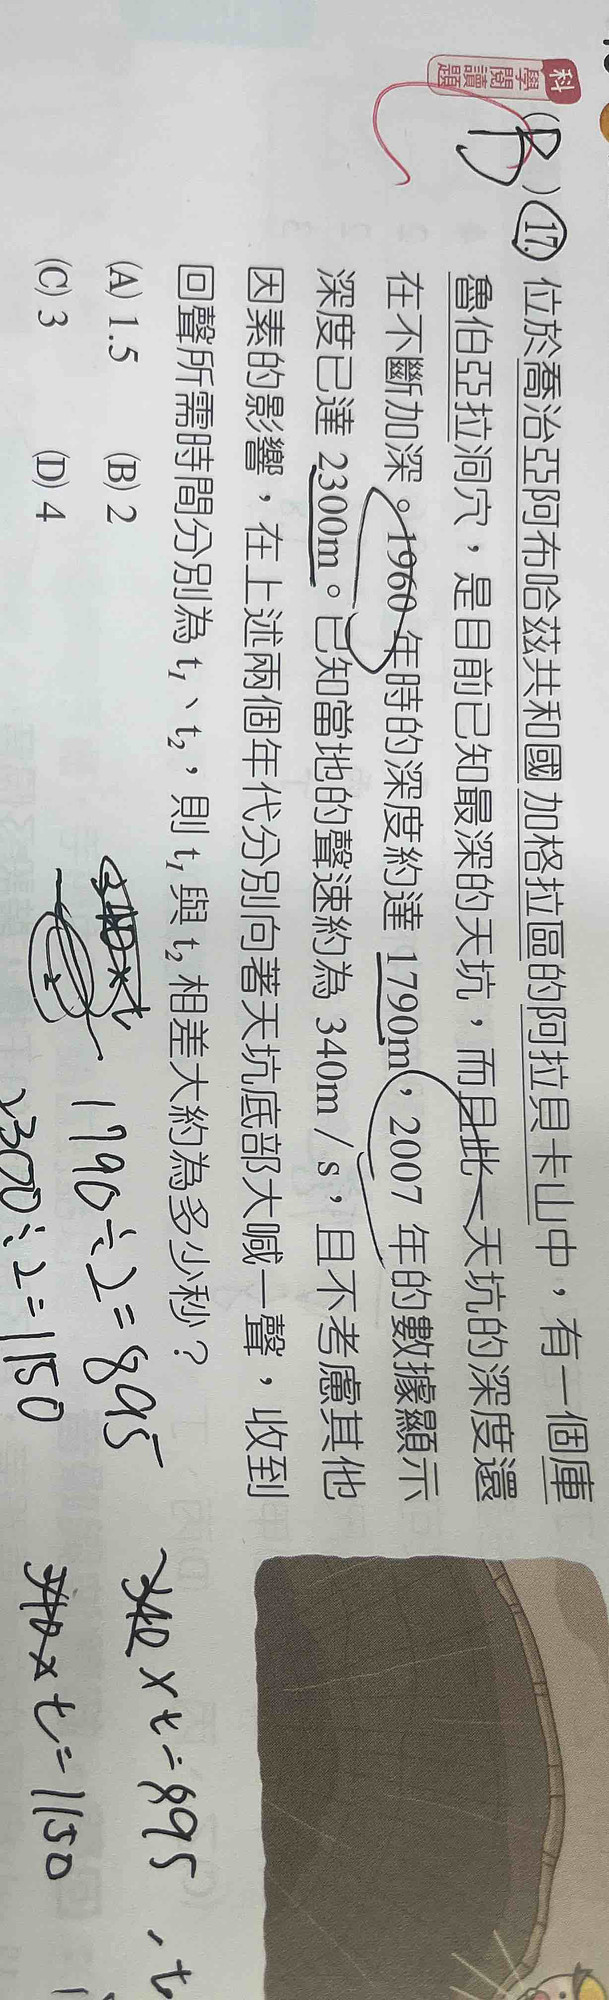 科學閱讀題
(B) 17. 位於喬治亞阿布哈茲共和國加格拉區的阿拉貝卡山中，有一個庫
魯伯亞拉洞穴，是目前已知最深的天坑，而且此一天坑的深度還
在不斷加深。1960 年時的深度約達 1790m，2007 年的數據顯示
深度已達 2300m。已知當地的聲速約為 340m/s，且不考慮其他
因素的影響，在上述兩個年代分別向著天坑底部大喊一聲，收到
回聲所需時間分別為 t₁、t₂，則 t₁ 與 t₂ 相差大約為多少秒？
(A) 1.5 (B) 2
(C) 3 (D) 4
1790÷2=895
2300÷2=1150
340×t=895 , t
340×t=1150